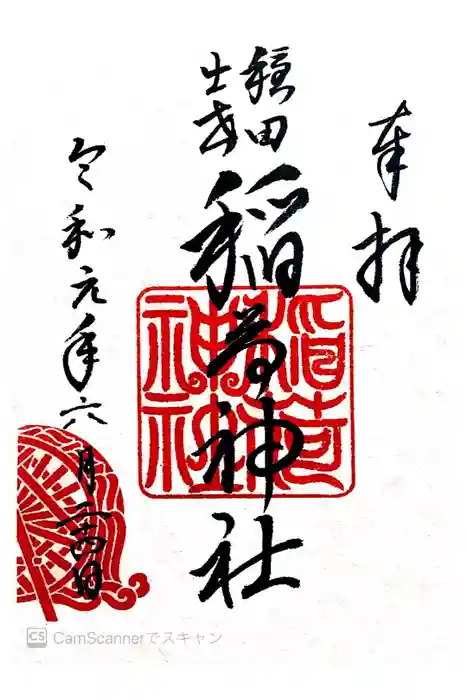 奉拝
穏田
出世
稲荷神社
令和元年六月二十四日
CS CamScannerでスキャン